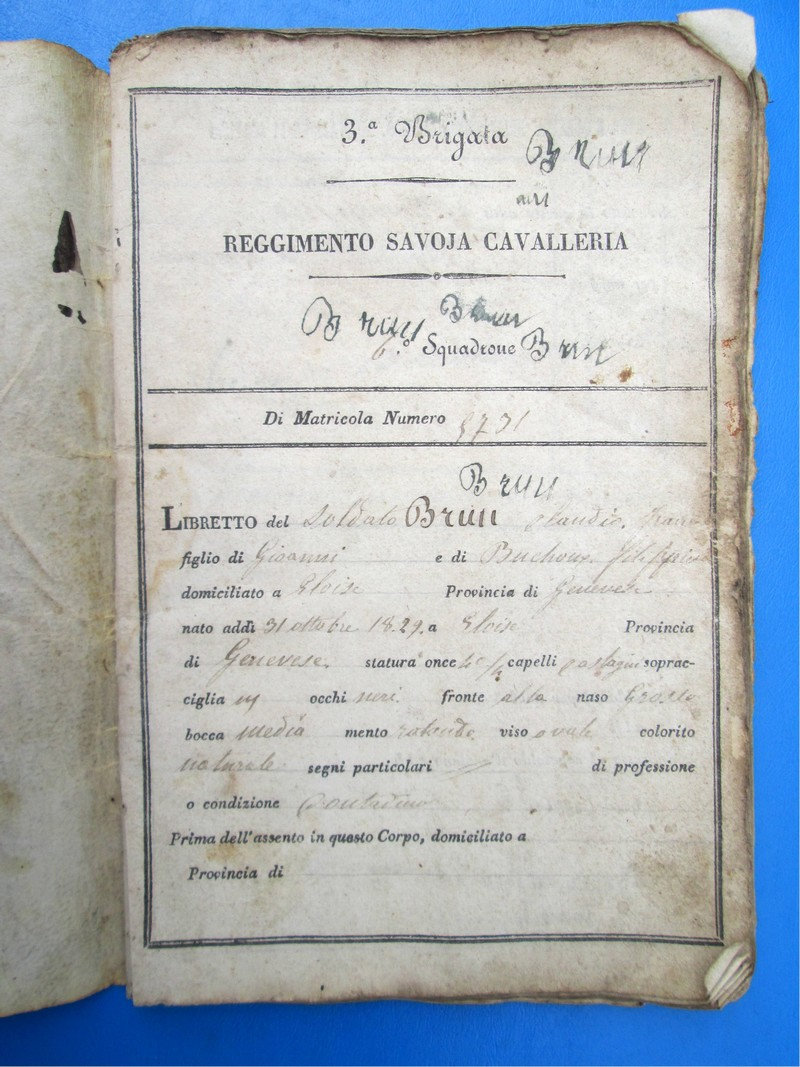 3.ª Brigata
Brun
REGGIMENTO SAVOJA CAVALLERIA
Brun Brun
6.º Squadrone Brun
Di Matricola Numero 5731
Brun
LIBRETTO del Soldato Brun Claudio
figlio di Gioanni e di
domiciliato a Eloise Provincia di Genevese
nato addì 31 ottobre 1829. a Eloise Provincia
di Genevese. statura once capelli castagni soprac-
ciglia occhi neri fronte alta naso Grosso
bocca media mento rotondo viso ovale colorito
naturale segni particolari di professione
o condizione Contadino
Prima dell'assento in questo Corpo, domiciliato a
Provincia di